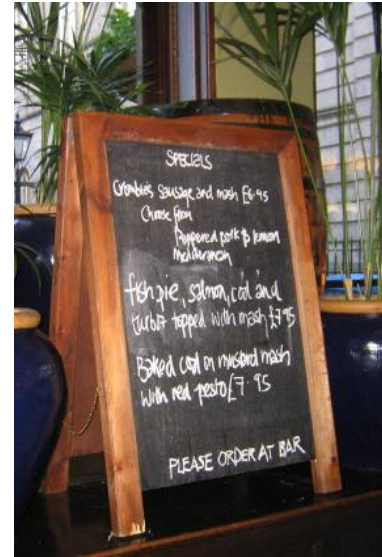 SPECIALS
Crombies Sausage and mash £6.95
Choose from
Peppered pork & lemon
Mediteranean
fish pie, salmon, cod and
turbot topped with mash £7.95
Baked cod on mustard mash
with red pesto £7.95
PLEASE ORDER AT BAR